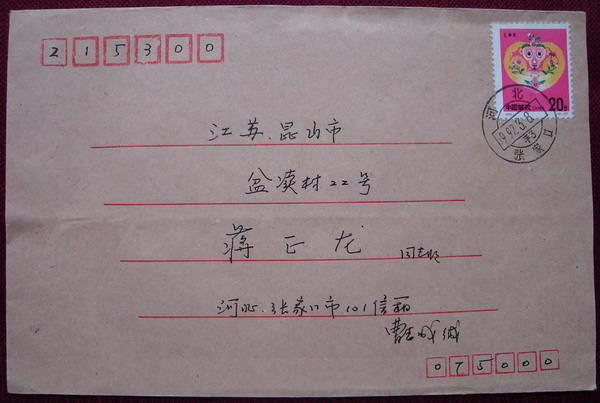 215300
壬申年
中国邮政
20分
河北
1992.3.8
张家口
江苏.昆山市
盆渎村22号
蒋正龙 同志收
河北.张家口市101信箱
075000